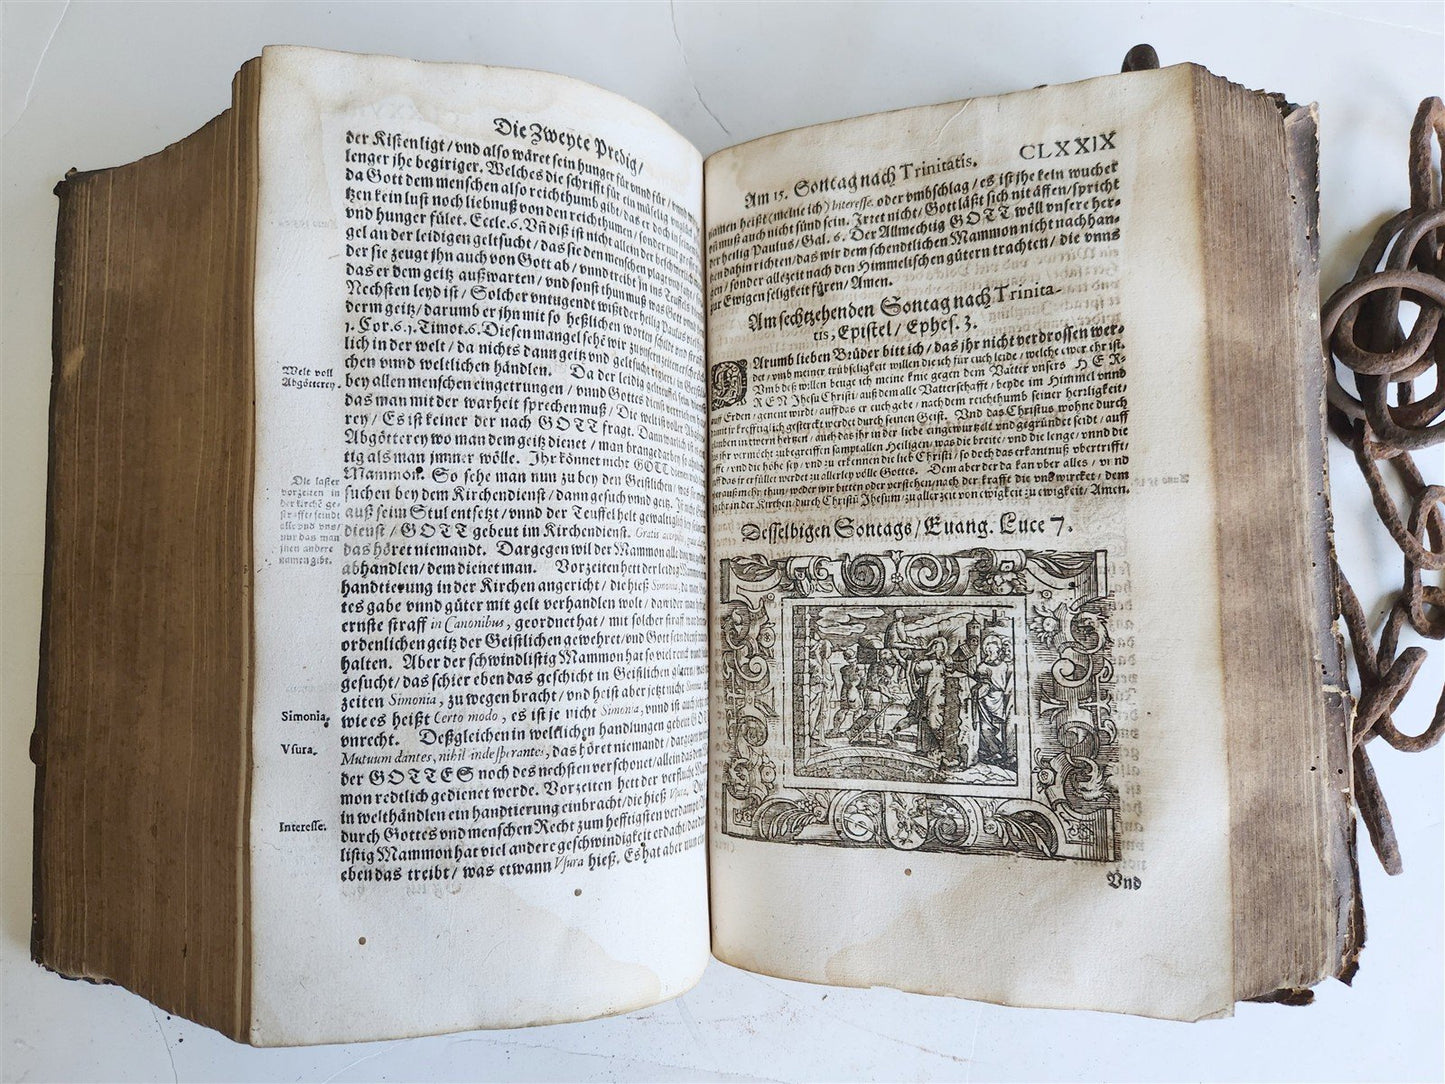 Die Zweyte Predig/
der Kistenligt/ vnd also wäret sein hunger für vnnd für/
lenger jhe begiriger. Welches die schrifft für ein müselig
da Gott dem menschen also reichthumb gibt/ das er doch in seinem
tzen kein lust noch liebnuß von den reichthumen/ sonder nur
vnd hunger fület. Eccle. 6. Vñ diß ist nicht allein der
gel an der leidigen geltsucht/ das sie den menschen plagt vnnd
der sie zeugt jhn auch von Gott ab/ vnnd treibt jn ins Teuffels
das er dem geitz außwarten/ vnd sonst thun muß was Gott
Nechsten leyd ist/ Solcher vntugendt wißt der heilig Paulus
derm geitz/ darumb er jhn mit so heßlichen worten schilt vnd
1. Cor. 6. 1. Timot. 6. Diesen mangel sehē wir zu vnsern zeiten
lich in der welt/ da nichts dann geitz vnd geltsucht regiert/ in
chen vnnd weltlichen händlen. Da der leidig geltteuffel
Welt voll
Abgötterey.
bey allen menschen eingetrungen/ vnnd Gottes dienst
das man mit der warheit sprechen muß/ Die welt ist voller
rey/ Es ist keiner der nach GOTT fragt. Dann warlich ist
Abgötterey wo man dem geitz dienet/ man brange darbey so
tig als man jmmer wölle. Jhr könnet nicht GOTT dienen
Mammon. So sehe man nun zu bey den Geistlichen/
Die laster
vorzeiten in
der kirchē ge-
strafft/ seindt
alle vnd vns/
nur das man
jnen andere
namen gibt.
suchen bey dem Kirchendienst/ dann gesuch vnnd geitz.
auß seim Stul entsetzt/ vnnd der Teuffel helt gewaltigklich
dienst/ GOTT gebeut im Kirchendienst. Gratis accepistis
das höret niemandt. Dargegen wil der Mammon alle
abhandlen/ dem dienet man. Vorzeiten hett der leidig Mammon
handtierung in der Kirchen angericht/ die hieß Simonia, da man
tes gabe vnnd güter mit gelt verhandlen wolt/ dawider man
ernste straff in Canonibus, geordnet hat/ mit solcher straff
ordenlichen geitz der Geistlichen gewehret/ vnd Gott sein dienst
halten. Aber der schwindlistig Mammon hat so viel renck
gesucht/ das schier eben das geschicht in Geistlichen gütern/ was
Simonia.
zeiten Simonia, zu wegen bracht/ vnd heist aber jetzt nicht Simonia
wie es heißt Certo modo, es ist je nicht Simonia, vnnd ist auch
vnrecht. Deßgleichen in weltlichen handlungen gebeut GOTT
Vsura.
Mutuum dantes, nihil inde sperantes, das höret niemandt/ dargegen
der GOTTES noch des nechsten verschonet/ allein das dem
mon redtlich gedienet werde. Vorzeiten hett der verflucht Mam
in welthändlen ein handtierung einbracht/ die hieß Vsura.
Interesse.
durch Gottes vnd menschen Recht zum hefftigsten verdampt
listig Mammon hat viel andere geschwindigkeit erdacht/ dardurch
eben das treibt/ was etwann Vsura hieß. Es hat aber nun
Am 15. Sontag nach Trinitatis. CLXXIX
namen heißt (meine ich) Interesse. oder vmbschlag/ es ist jhe kein wucher
muß auch nicht sünd sein. Irret nicht/ Gott läßt sich nit äffen/ spricht
der heilig Paulus/ Gal. 6. Der Allmechtig GOTT wöll vnsere her-
tzen dahin richten/ das wir dem schendtlichen Mammon nicht nachhan-
gen/ sonder allezeit nach den Himmelischen gütern trachten/ die vnns
zur Ewigen seligkeit füren/ Amen.
Am sechtzehenden Sontag nach Trinita-
tis, Epistel/ Ephes. 3.
DArumb lieben Brüder bitt ich/ das jhr nicht verdrossen wer-
det/ vmb meiner trübseligkeit willen die ich für euch leide/ welche ewer ehr ist.
Vmb deß willen beuge ich meine knie gegen dem Vatter vnsers HER-
REN Jhesu Christi/ auß dem alle Vatterschafft/ beyde im Himmel vnnd
auff Erden/ genent wirdt/ auff das er euch gebe/ nach dem reichthumb seiner herrligkeit/
damit jr krefftiglich gesterckt werdet durch seinen Geist. Vnd das Christus wohne durch
glauben in ewern hertzen/ auch das jhr in der liebe eingewurtzelt vnd gegründet seidt/ auff
das jhr vermöcht zubegreiffen sampt allen Heiligen/ was die breite/ vnd die lenge/ vnnd die
tieffe/ vnd die höhe sey/ vnd zu erkennen die lieb Christi/ so doch das erkantnuß vbertrifft/
auff das jr erfüllet werdet zu allerley völle Gottes. Dem aber der da kan vber alles/ vnnd
mer auß mehr thun/ weder wir bitten oder verstehen/ nach der krafft die vnd wircket/ dem
sey ehr in der Kirchen/ durch Christū Jhesum/ zu aller zeit von ewigkeit zu ewigkeit/ Amen.
Desselbigen Sontags/ Euang. Luce 7.
Vnd